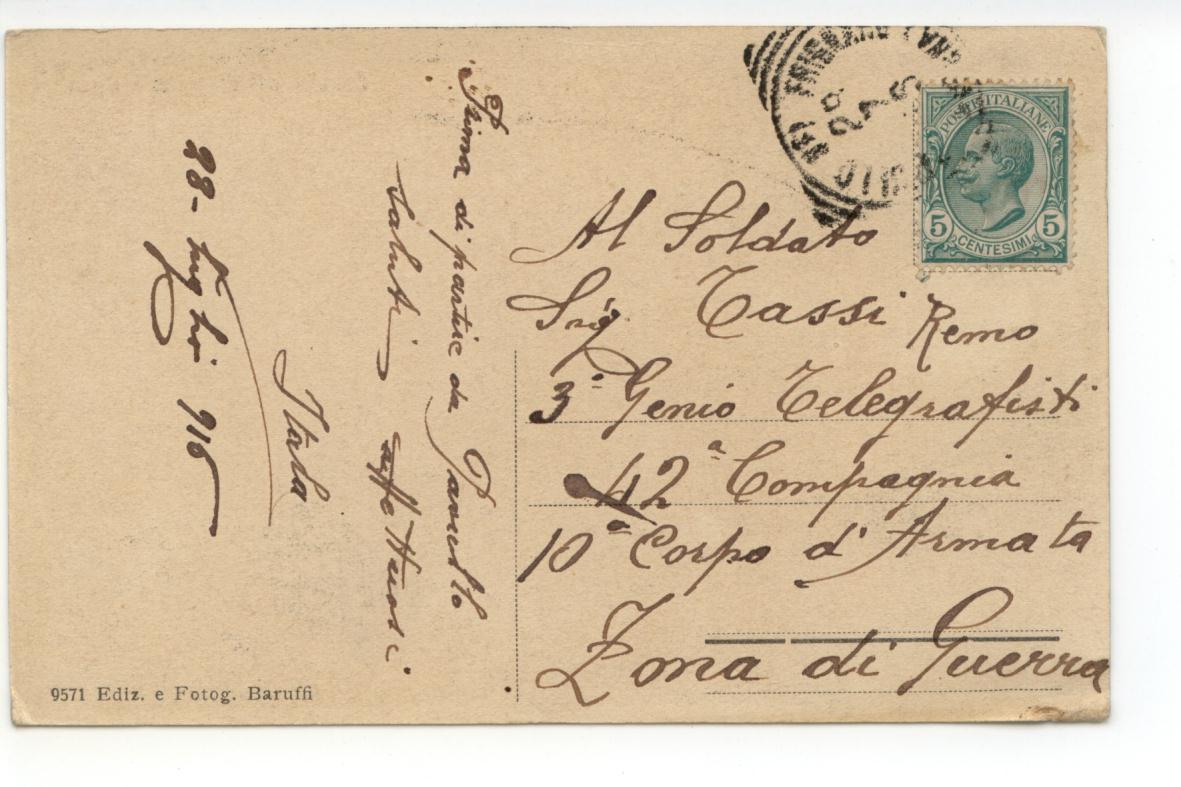 Prima di partire da
saluti affettuosi.
Itala
28 - luglio 916
Al Soldato
Sig. Tassi Remo
3º Genio Telegrafisti
42ª Compagnia
10º Corpo d'Armata
Zona di Guerra
POSTE ITALIANE
5 CENTESIMI 5
9571 Ediz. e Fotog. Baruffi